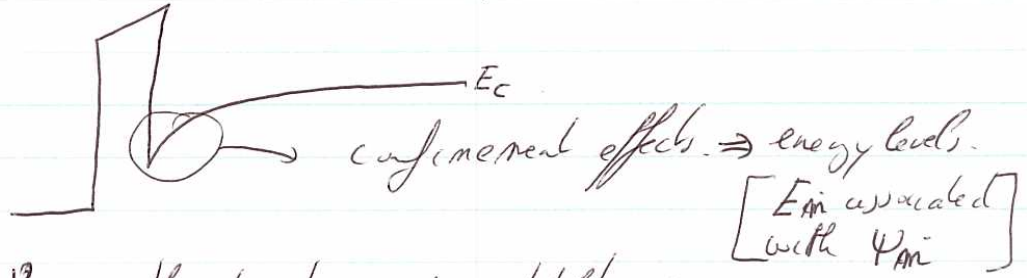 E_C
confinement effects. ⇒ energy levels.
[E_m associated
with Ψ_m]